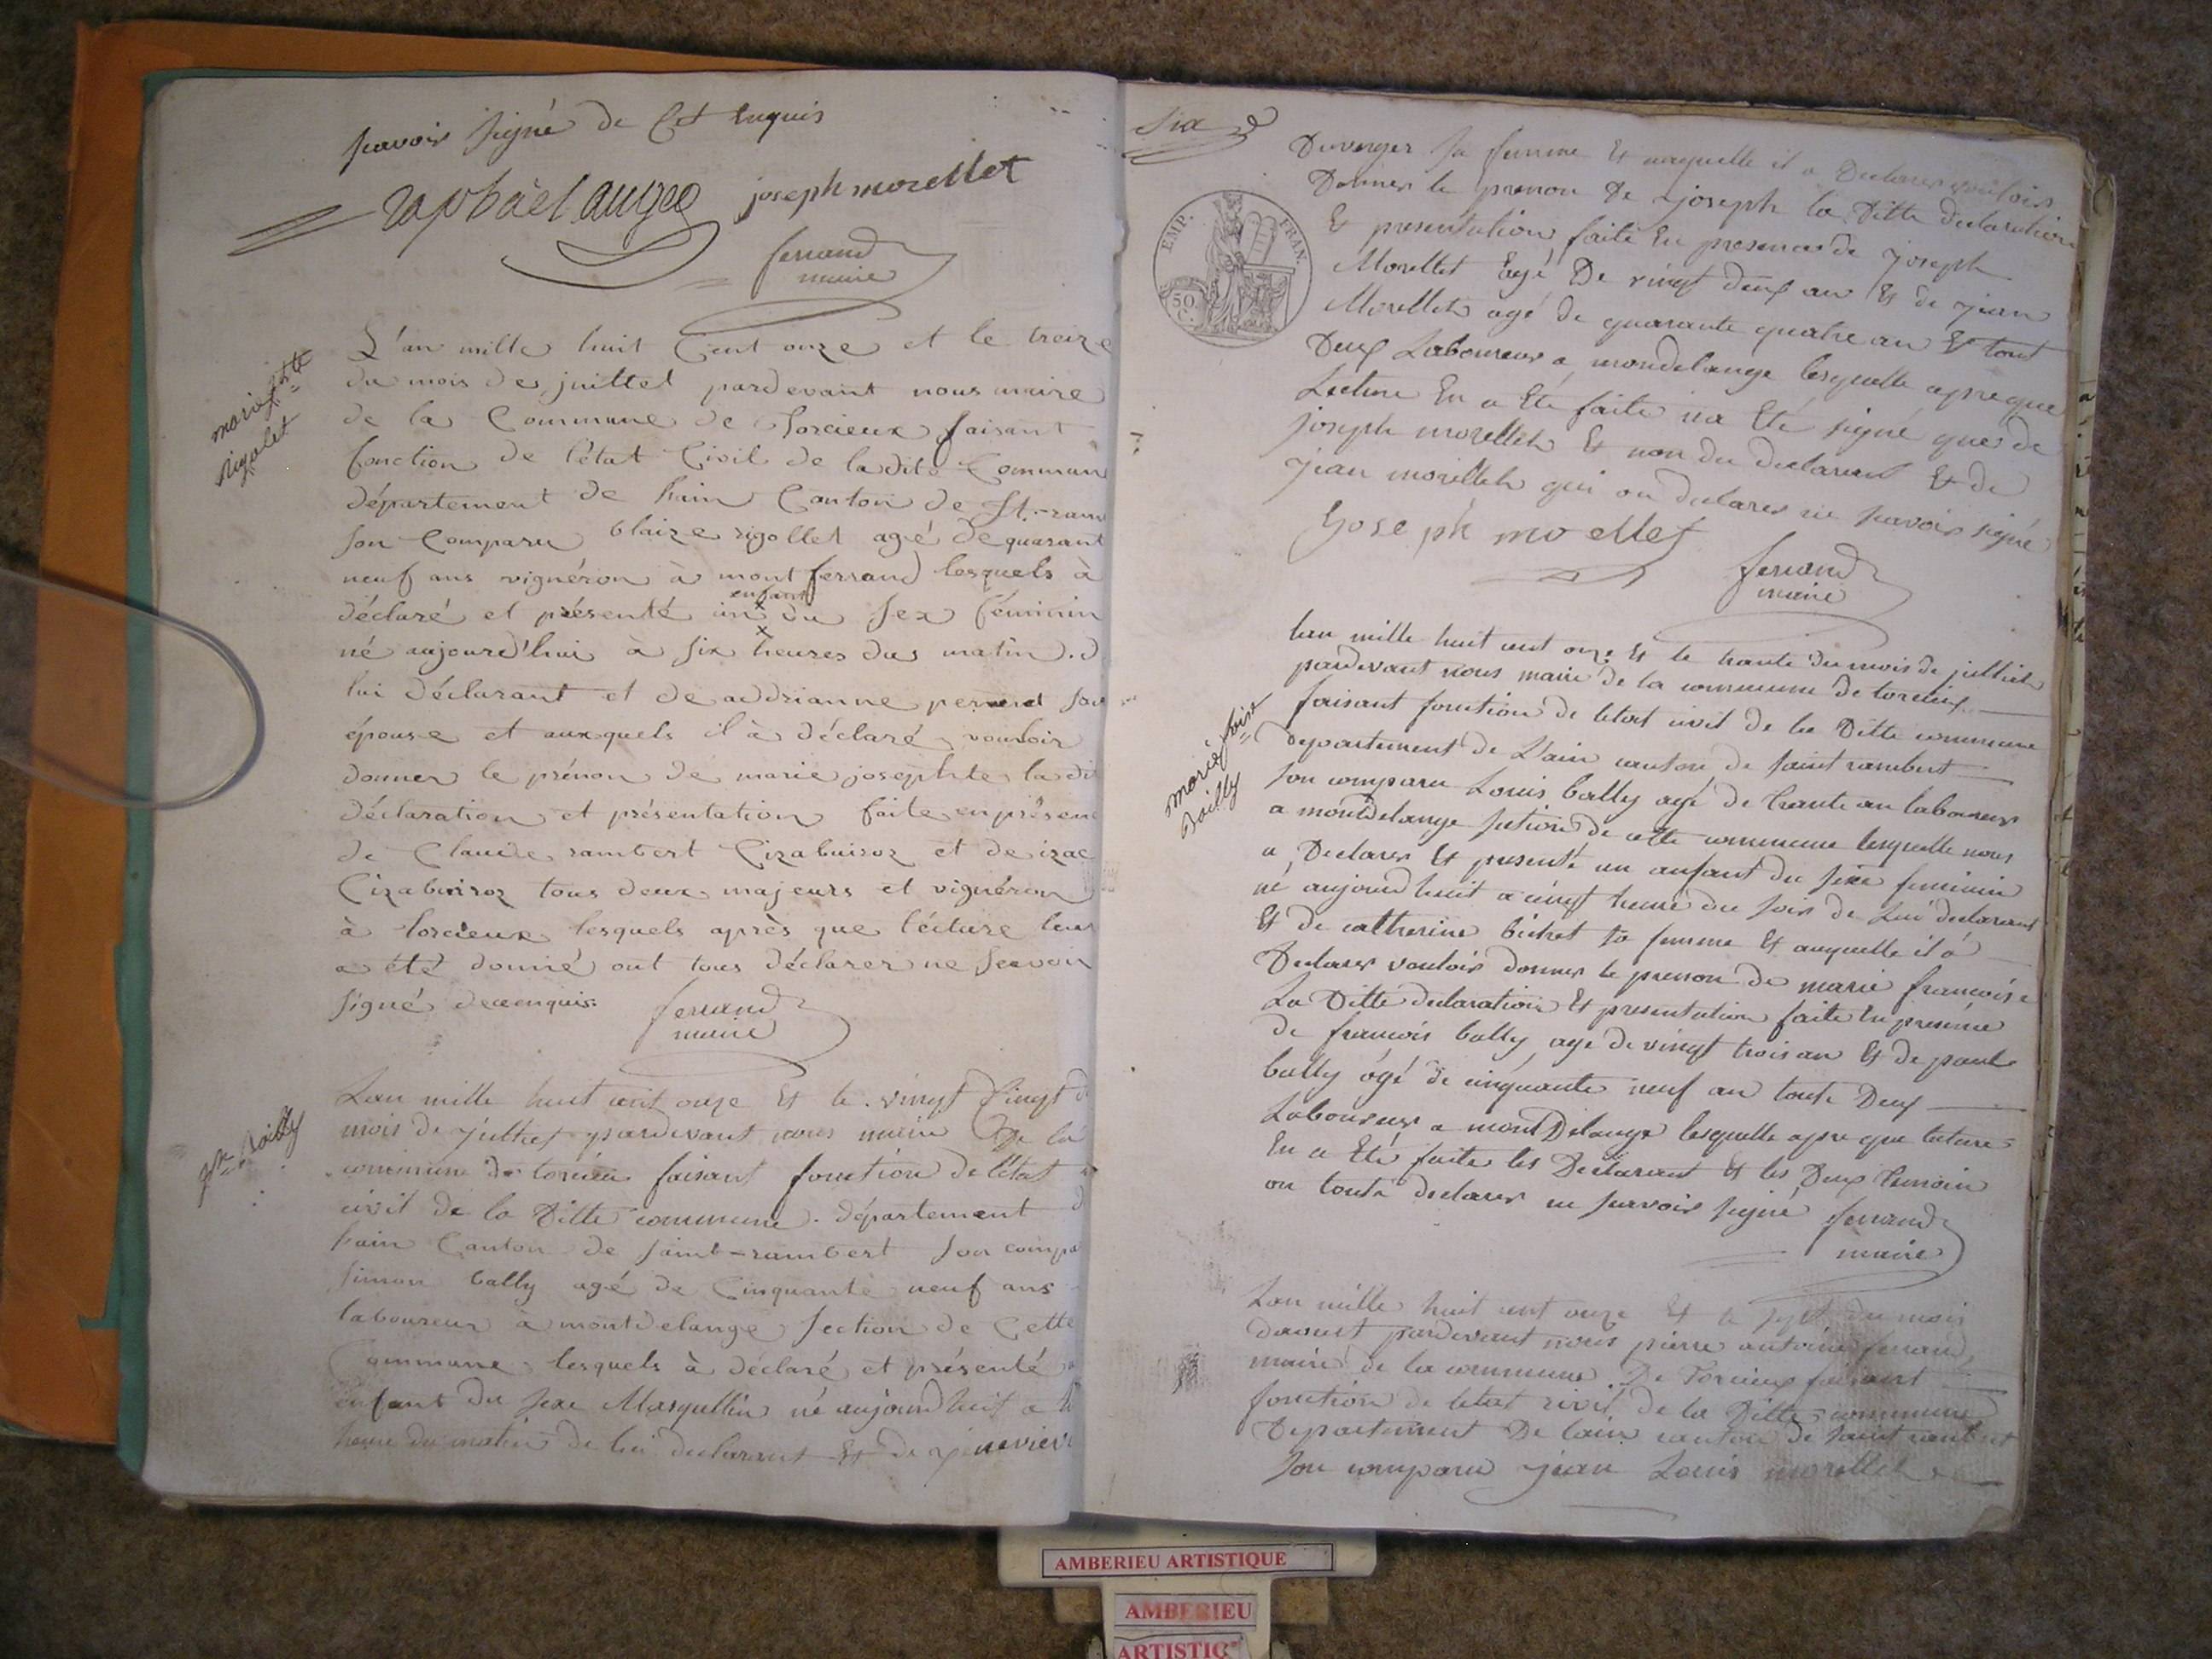 scavoir signé de Cet enquis
raphaël auger joseph morellet
ferrand
maire
marie jste
rigolet
L'an mille huit Cent onze et le treize
du mois de juillet pardevant nous maire
de la Commune de torcieux faisant
fonction de l'état Civil de ladite Commun
département de lain Canton de St.-ram
son Comparu blaize rigollet agé de quarant
neuf ans vignéron à montferrand lesquels à
déclaré et présenté un enfant du sex féminin
né aujourd'hui à six heures dus matin . d
lui déclarant et de addrianne pernet son
épouse et auxquels il à déclaré vouloir
donner le prénon de marie josephte la di
déclaration et présentation faite enprésen
de Claude rambert Cizabuiroz et de izac
Cizabuiroz tous deux majeurs et vignéron
à torcieux lesquels après que lécture leur
a été donné ont tous déclarer ne scavoir
signé de ce enquis
ferrand
maire
jn Bailly
Lan mille huit cent onze Et le vingt Cinqt d
mois de juillet pardevant nous maire De la
commune de torcieu faisant fonction de l'état
civil de la Ditte commune . département d
lain Canton de saint-rambert son compa
simon bally agé de Cinquante neuf ans
laboureur à montdelange section de Cette
Commune lesquels à déclaré et présenté
enfant du sexe Masqullin né aujourd huit a
heure du matin de lui declarant Et de jeneviev
six
Duverger sa femme Et auquelle il a Declarer vouloir
Donner le prenon De joseph la Ditte declaration
Et presentation faite En presence de joseph
Morellet Egé De vingt deux an Et de jean
Morellet agé de quarante quatre an Et tout
Deux Laboureur a mondelange lesquelle apreque
Lecture En a Eté faite na Eté signé que de
joseph morellet Et non du declarant Et de
jean morellet qui on declarer ne savoir signé
EMP. FRAN.
50 C.
Joseph moellet
ferrand
maire
lan mille huit cent onze Et le trante du mois de julliet
pardevant nous maire de la commune de torcieux
faisant fonction de létat civil de la Ditte commune
departement de L'ain canton de saint rambert
son comparu Louis bally agé de trante an laboureur
a montdelange section de cette commune lesquelle nous
a Declarer Et presenté un anfant du sexe feminin
né aujourd huit a cinqt heure du soir de Lui declarant
Et de catherine bichet sa femme Et auquelle il a
Declarer vouloir donner le prenon de marie françoise
La Ditte declaration Et presentation faite En presence
de françois bally age de vingt trois an Et de paul
bally ágé de cinquante neuf an toute Deux
Laboureur a montDelange lesquelle apre que lecture
En a Eté faite les Declarant Et les Deux temoin
on toute declarer ne savoir signé
ferrand
maire
marie foise
Bailly
Lan mille huit cent onze Et le sept du mois
daoust pardevant nous pierre antoine ferrand
maire de la commune De Torcieux faisant
fonction de letat civil de la Ditte commune
Departement De lain canton de saint rambert
son comparu jean Louis morellet
AMBERIEU ARTISTIQUE
AMBERIEU
ARTISTIQ